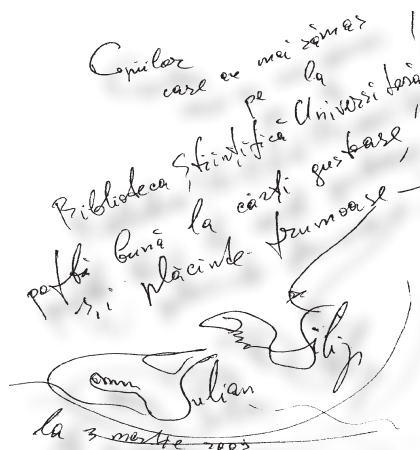 Copiilor
care au mai rămas
pe la
Biblioteca Științifică Universitară
poftă bună la cărți gustoase,
și plăcinte frumoase –
Iulian Filip
la 3 martie 2009